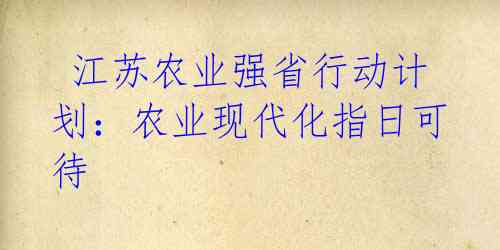 江苏农业强省行动计
划：农业现代化指日可
待